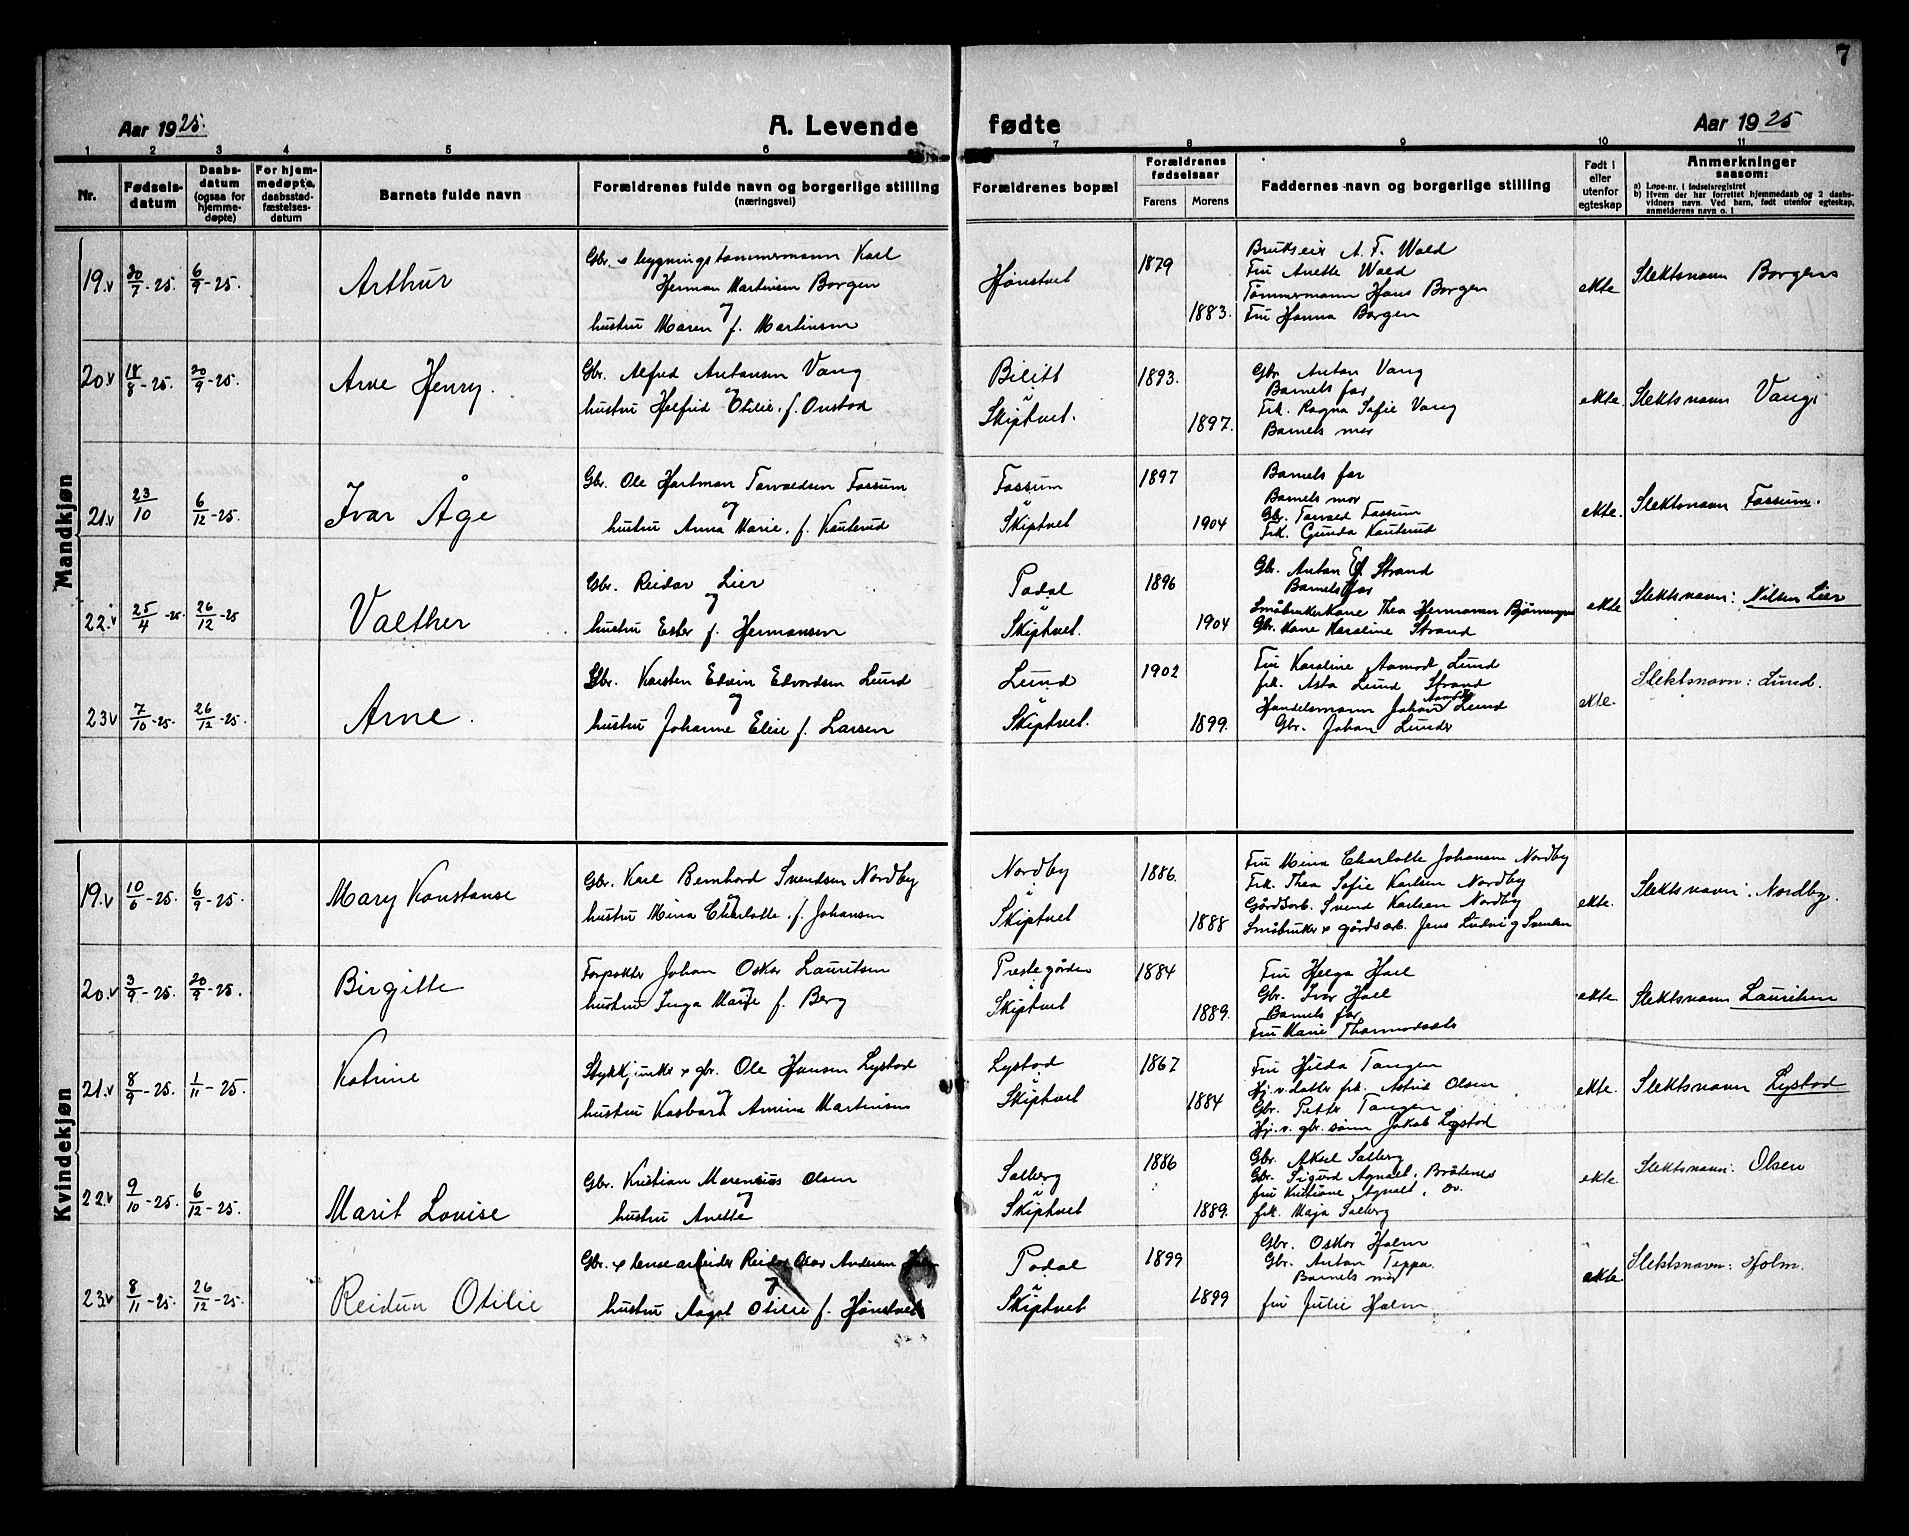 7
Aar 1925.
A. Levende fødte
Aar 1925
1 2 3 4 5 6 7 8 9 10 11
Nr.
Fødsels-
datum
Daabs-
datum
(ogsaa for
hjemme-
døpte)
For hjem-
medøpte,
daabsstad-
fæstelses-
datum
Barnets fulde navn
Forældrenes fulde navn og borgerlige stilling
(næringsvei)
Forældrenes bopæl
Forældrenes
fødselsaar
Farens Morens
Faddernes navn og borgerlige stilling
Født i
eller
utenfor
egteskap
Anmerkninger
saasom:
a) Løpe-nr. i fødselsregistret
b) Hvem der har forrettet hjemmedaab og 2 daabs-
vidners navn. Ved barn, født utenfor egteskap,
anmelderens navn o. l
Mandkjøn
19.v 20/7-25 6/9-25. Arthur
Gbr. & bygningstømmermann Karl
Herman Martinsen Borgen
og
hustru Maren f. Martinsen
Hønstvet
1879
1883.
Brukseier A. F. Wold
Fru Anette Wold
Tømmermann Hans Borgen
Fru Hanna Borgen
ekte
Slektsnavn Borgen
20.v 14/8-25. 20/9-25. Arne Henry.
Gbr. Alfred Antonsen Vang
og
hustru Helfrid Otilie. f. Onstad
Bilitt
Skiptvet.
1893.
1897.
Gbr. Anton Vang
Barnets far
Frk. Ragna Sofie Vang
Barnets mor
ekte.
Slektsnavn Vang
21.v 23/10 6/12-25. Ivar Åge
Gbr. Ole Hartman Torvaldsen Fossum
og
hustru Anna Marie. f. Kauterud
Fossum
Skiptvet
1897
1904
Barnets far
Barnets mor
Gbr. Torvald Fossum
Frk. Gunda Kauterud
ekte.
Slektsnavn Fossum.
22.v 25/4-25. 26/12-25 Valther
Gbr. Reidar Lier
og
hustru Ester f. Hermansen
Podal
Skiptvet.
1896
1904
Gbr. Anton Strand
Barnets far
Småbrukerkone Thea Hermansen
Gbr. kone Karoline Strand
ekte
Slektsnavn: Nilsen Lier
23v 7/10-25. 26/12-25. Arne.
Gbr. Karsten Edvin Edvardsen Lund
og
hustru Johanne Elise f. Larsen
Lund
Skiptvet.
1902
1899.
Fru Karoline Aamodt Lund
frk. Asta Lund Strand
Handelsmann Johan Lund
Gbr. Johan Lunder
ekte.
Slektsnavn: Lund.
Kvindekjøn
19.v 10/6-25. 6/9-25. Mary Konstanse
Gbr. Karl Bernhard Svendsen Nordby
og
hustru Mina Charlotte. f. Johansen
Nordby
Skiptvet
1886.
1888
Fru Mina Charlotte Johansen Nordby
Frk. Thea Sofie Karlsen Nordby
Gårdsarb. Svend Karlsen Nordby
Småbruker & gårdsarb. Jens Ludvig Svendsen
ekte.
Slektsnavn: Nordby.
20.v 3/9-25. 20/9-25. Birgitte
Forpakter Johan Oskar Lauritsen
og
hustru Inga Marie f. Berg
Prestegården
Skiptvet
1884
1889.
Fru Helga Hoel
Gbr. Ivar Hoel
Barnets far
Fru Marie
ekte
Slektsnavn Lauritsen
21.v 8/9-25. 1/11-25. Katrine
& gbr. Ole Hansen Lystad
og
hustru Kasbara Amina Martinsen
Lystad
Skiptvet
1867
1884
Fru Hilda Tangen
Hj. v. datter frk. Astrid Olsen
Gbr. Petter Tangen
Hj. v. gbr. sønn Jakob Lystad
ekte.
Slektsnavn Lystad
22.v 9/10-25. 6/12-25. Marit Lovise
Gbr. Kristian Marensius Olsen
og
hustru Anette
Solberg
Skiptvet
1886
1889.
Gbr. Aksel Solberg
Gbr. Sigurd Agnalt, Bråtenes
fru Kristiane Agnalt, Do.
frk. Maja Solberg
ekte.
Slektsnavn: Olsen
23.v 8/11-25. 26/12-25. Reidun Otilie
Gbr. & lensearbeider Reidar Olav Andersen
og
hustru Aagot Otilie f. Hønstvet
Podal
Skiptvet
1899
1899
Gbr. Oskar Holm
Gbr. Anton Teppa
Barnets mor
fru Julie Holm
ekte
Slektsnavn: Holm.